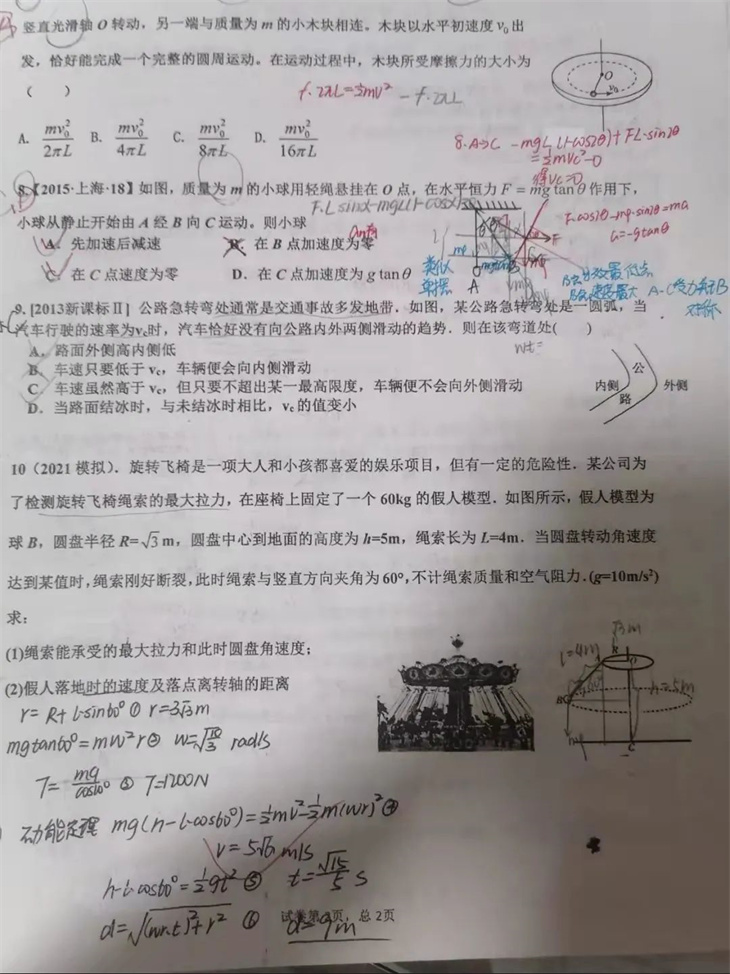 竖直光滑轴 O 转动，另一端与质量为 m 的小木块相连。木块以水平初速度 v₀ 出
发，恰好能完成一个完整的圆周运动。在运动过程中，木块所受摩擦力的大小为
（ ）
f·2πL=½mv²
-f·2πL
A. mv₀²/2πL B. mv₀²/4πL C. mv₀²/8πL D. mv₀²/16πL
O
v₀
8. A→C -mgL(1-cos2θ)+FL·sin2θ
=½mVc²-0
得Vc=0
8.【2015·上海·18】如图，质量为 m 的小球用轻绳悬挂在 O 点，在水平恒力 F = mg tanθ 作用下，
F·Lsinα-mgL(1-cosα)
小球从静止开始由 A 经 B 向 C 运动。则小球
A．先加速后减速 B．在 B 点加速度为零
C．在 C 点速度为零 D．在 C 点加速度为 g tanθ
F·cos2θ-mg·sin2θ=ma
a=-gtanθ
类似
单摆
A
F
B点速度最大 A-C受力关于B
对称
9. [2013新课标Ⅱ] 公路急转弯处通常是交通事故多发地带．如图，某公路急转弯处是一圆弧，当
汽车行驶的速率为vc时，汽车恰好没有向公路内外两侧滑动的趋势．则在该弯道处( )
A．路面外侧高内侧低
B．车速只要低于 vc，车辆便会向内侧滑动
C．车速虽然高于 vc，但只要不超出某一最高限度，车辆便不会向外侧滑动
D．当路面结冰时，与未结冰时相比，vc 的值变小
内侧 公路 外侧
10（2021 模拟）．旋转飞椅是一项大人和小孩都喜爱的娱乐项目，但有一定的危险性．某公司为
了检测旋转飞椅绳索的最大拉力，在座椅上固定了一个 60kg 的假人模型．如图所示，假人模型为
球 B，圆盘半径 R=√3 m，圆盘中心到地面的高度为 h=5m，绳索长为 L=4m．当圆盘转动角速度
达到某值时，绳索刚好断裂，此时绳索与竖直方向夹角为 60°，不计绳索质量和空气阻力．(g=10m/s²)
求：
(1)绳索能承受的最大拉力和此时圆盘角速度；
(2)假人落地时的速度及落点离转轴的距离
√3m
l=4m
h=5m
B
mg
C
r=R+L·sin60° ① r=3√3m
mgtan60°=mw²r ② w=√(10/3) rad/s
T=mg/cos60° ③ T=1200N
动能定理 mg(h-L·cos60°)=½mv²-½m(wr)² ④
v=5√6 m/s
h-L·cos60°=½gt² ⑤ t=√15/5 s
d=√((wr·t)²+r²) ⑥ d=9m
试卷第2页，总 2页